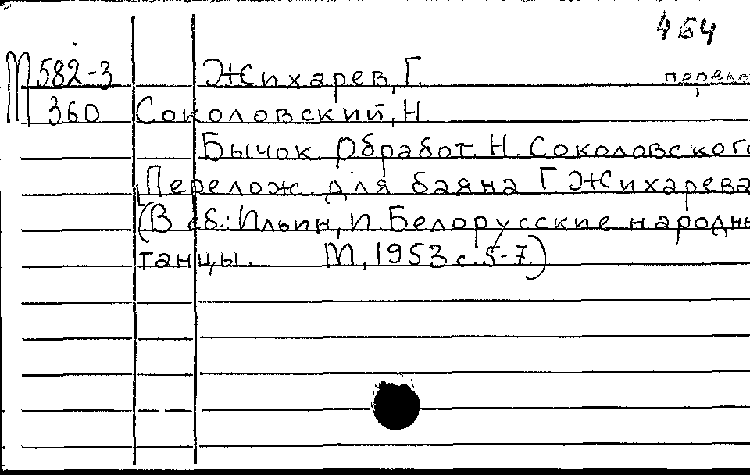 464
М582-3 Жихарев, Г. перело
360 Соколовский, Н.
Бычок. Обработ. Н. Соколовского
Перелож. для баяна Г. Жихарева
(В сб.: Ильин, И. Белорусские народны
танцы. М., 1953 с. 5-7.)